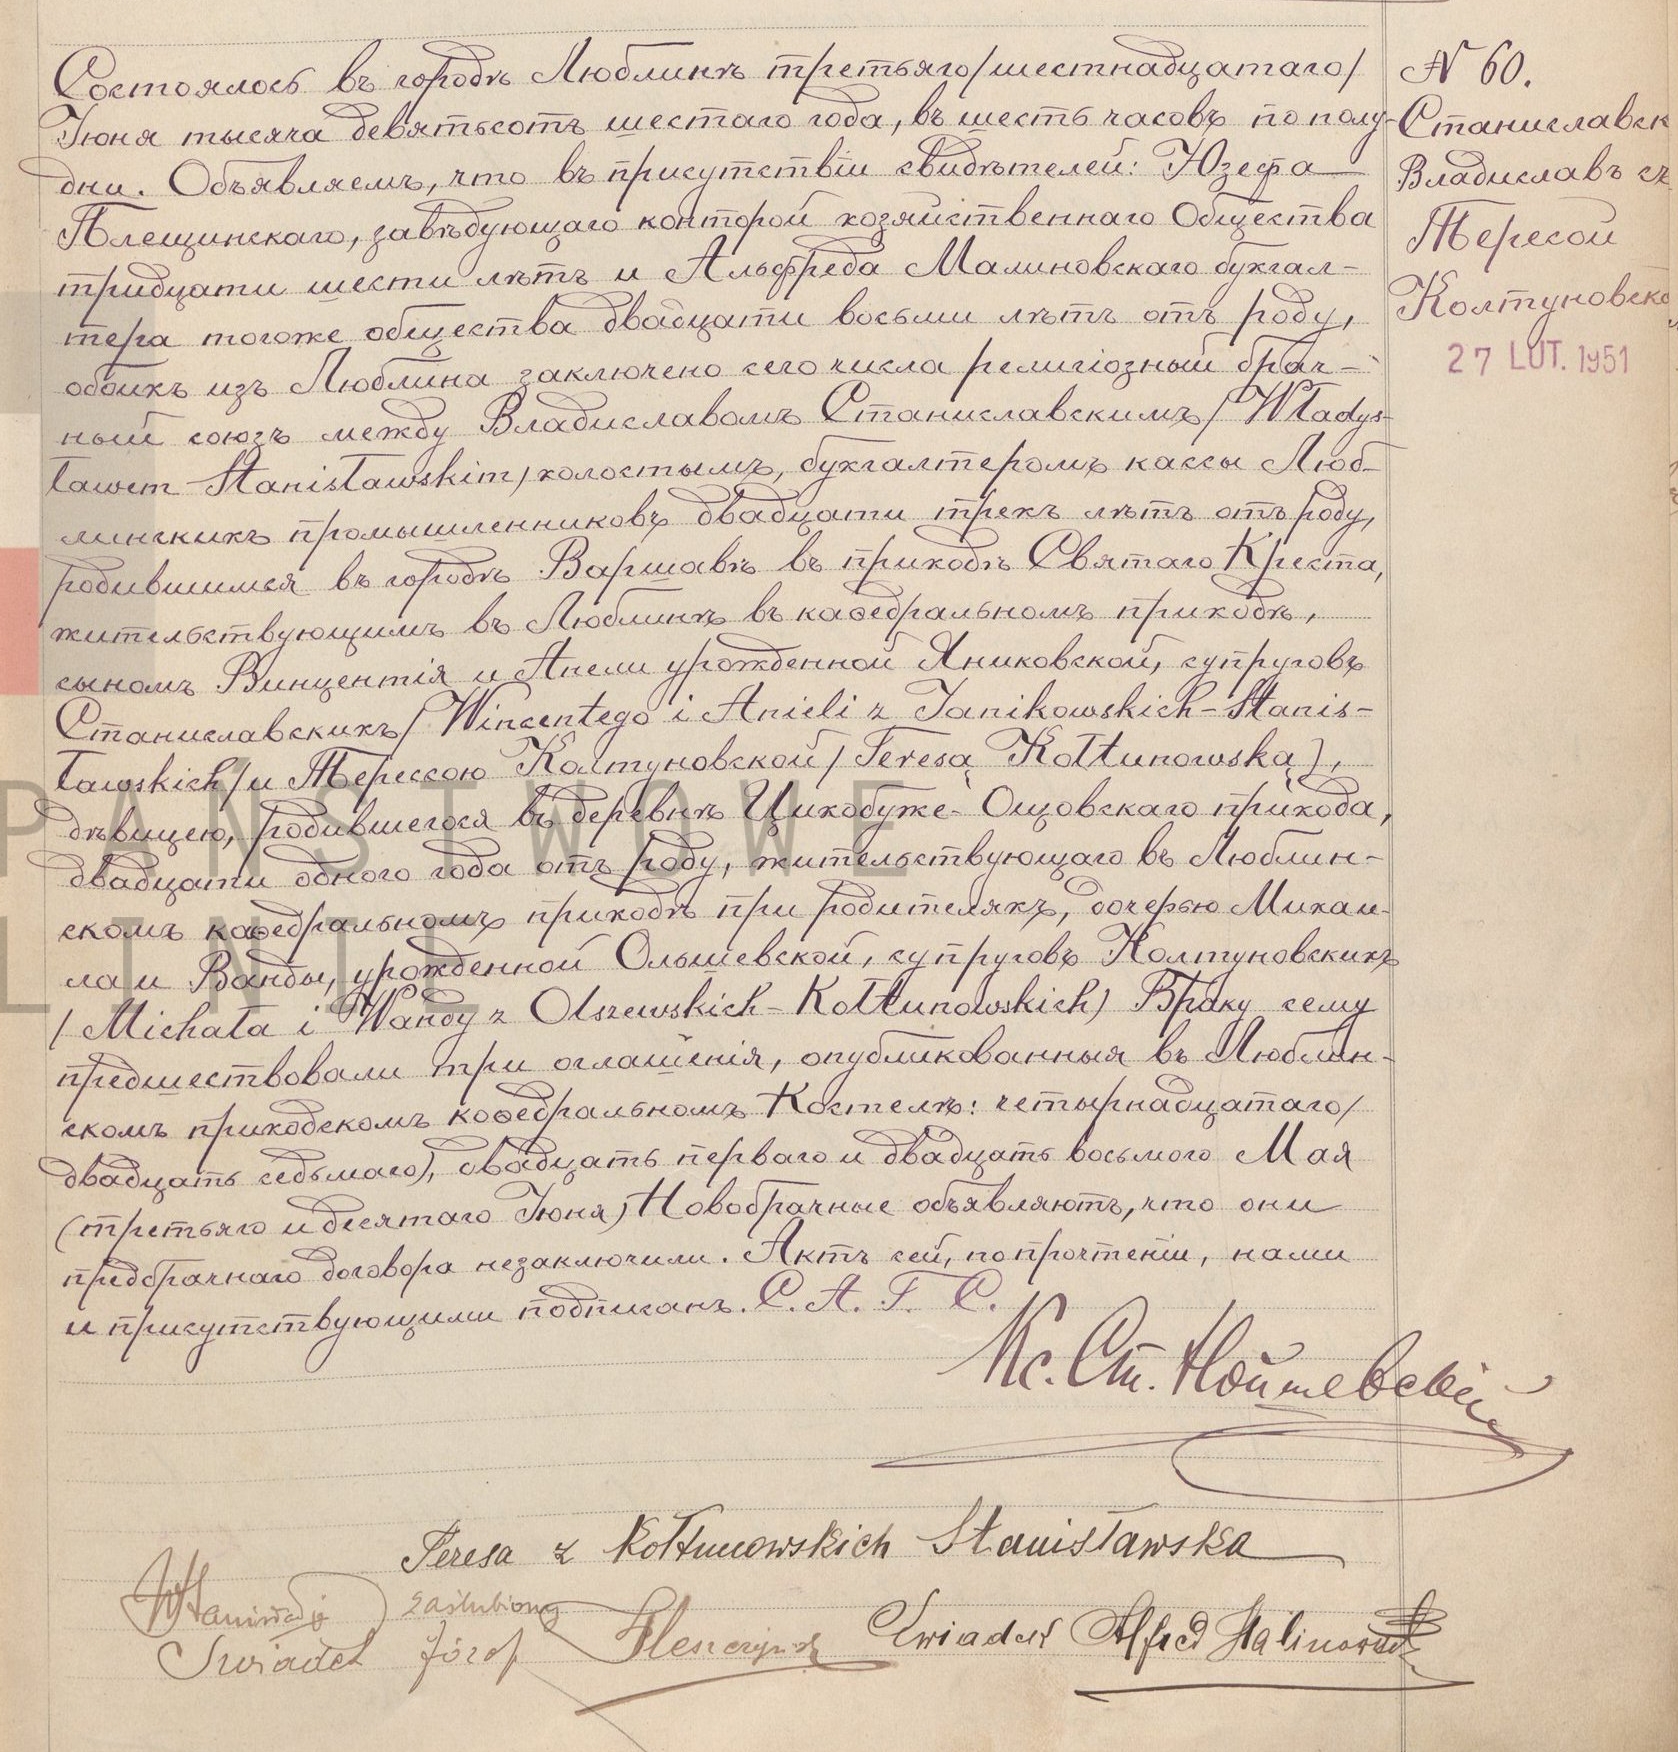 Состоялось въ городѣ Люблинѣ третьяго/шестнадцатаго/
Іюня тысяча девятьсотъ шестаго года, въ шесть часовъ по полу-
дни. Объявляемъ, что въ присутствіи свидѣтелей: Юзефа
Плещинскаго, завѣдующаго конторой хозяйственнаго Общества
тридцати шести лѣтъ и Альфреда Малиновскаго бухгал-
тера тогоже общества двадцати восьми лѣтъ отъ роду,
обоихъ изъ Люблина заключено сего числа религіозный брач-
ный союзъ между Владиславомъ Станиславскимъ/Władys-
ławem Stanisławskim/холостымъ, бухгалтеромъ кассы Люб-
линскихъ промышленниковъ двадцати трехъ лѣтъ отъ роду,
родившимся въ городѣ Варшавѣ въ приходѣ Святаго Креста,
жительствующимъ въ Люблинѣ въ каѳедральномъ приходѣ,
сыномъ Винцентія и Анели урожденной Яниковской, супруговъ
Станиславскихъ/Wincentego i Anieli z Janikowskich-Stanis-
ławskich/и Терессою Колтуновской/Teresą Kołtunowską),
дѣвицею, родившегося въ деревнѣ Цихобуже-Ощовскаго прихода,
двадцати одного года отъ роду, жительствующаго въ Люблин-
скомъ каѳедральномъ приходѣ при родителяхъ, дочерью Михаи-
ла и Ванды, урожденной Ольшевской, супруговъ Колтуновскихъ
/Michała i Wandy z Olszewskich-Kołtunowskich) Браку сему
предшествовали три оглашенія, опубликованныя въ Люблин-
скомъ приходскомъ каѳедральномъ Костелѣ: четырнадцатаго/
двадцать седьмаго), двадцать перваго и двадцать восьмого Мая
(третьяго и десятаго Іюня) Новобрачные объявляютъ, что они
предбрачнаго договора незаключили. Актъ сей, по прочтеніи, нами
и присутствующими подписанъ. С. А. Г. С.
Кс. Ст.
Teresa z Kołtunowskich Stanisławska
zaślubiony
Świadek Józef Pleszczyński Świadek Alfred Malinowski
№ 60.
Станиславск
Владиславъ съ
Тересой
Колтуновско
27 LUT. 1951
PAŃSTWOWE